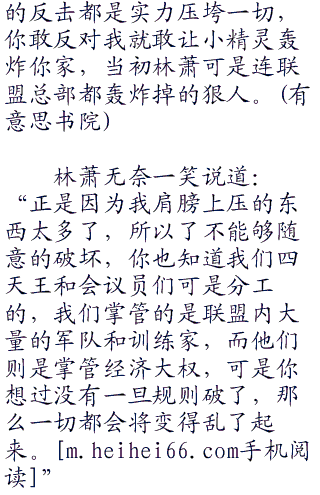 的反击都是实力压垮一切，
你敢反对我就敢让小精灵轰
炸你家，当初林萧可是连联
盟总部都轰炸掉的狠人。(有
意思书院)
林萧无奈一笑说道：
“正是因为我肩膀上压的东
西太多了，所以了不能够随
意的破坏，你也知道我们四
天王和会议员们可是分工
的，我们掌管的是联盟内大
量的军队和训练家，而他们
则是掌管经济大权，可是你
想过没有一旦规则破了，那
么一切都会将变得乱了起
来。[m.heihei66.com手机阅
读]”